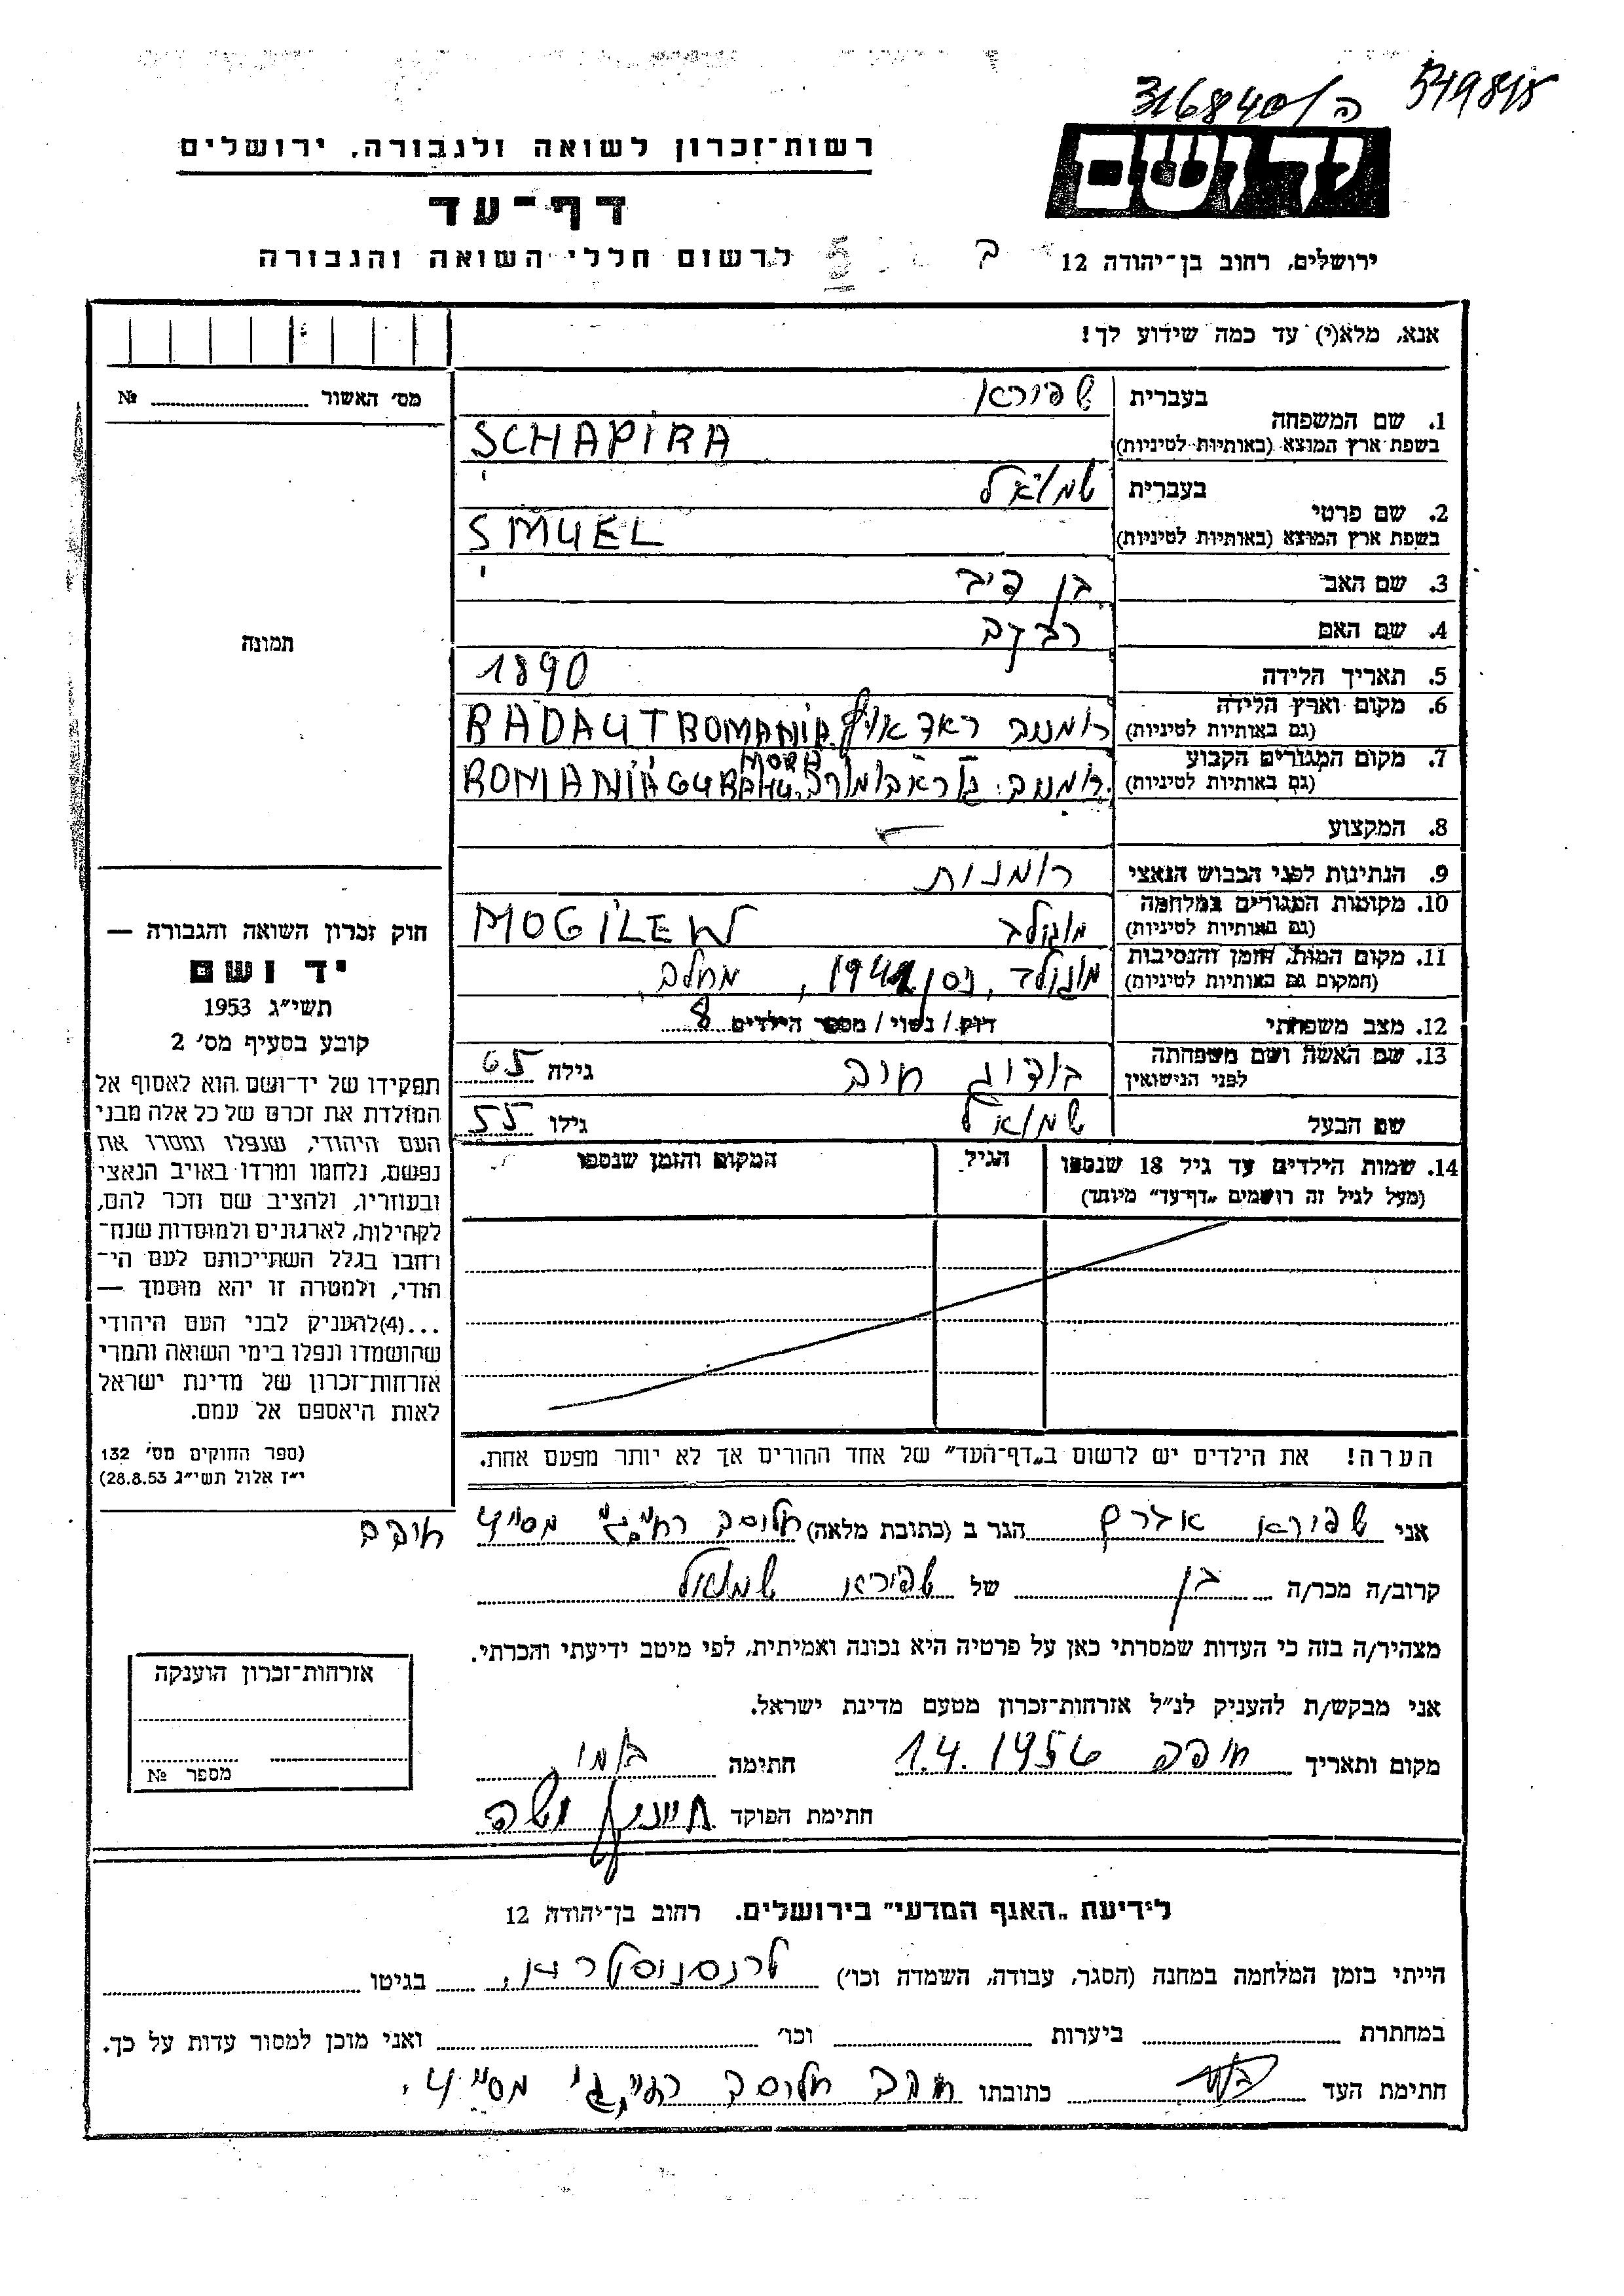 316840/ה
רשות־זכרון לשואה ולגבורה, ירושלים
יד ושם
דף־עד
לרשום חללי השואה והגבורה
5
ב
ירושלים, רחוב בן־יהודה 12
אנא, מלא(י) עד כמה שידוע לך!
מס׳ האשור № 
תמונה
1. שם המשפחה בעברית שפירא
בשפת ארץ המוצא (באותיות לטיניות) SCHAPIRA
2. שם פרטי בעברית שמואל
בשפת ארץ המוצא (באותיות לטיניות) SMUEL
3. שם האב בן
4. שם האם רבקה
5. תאריך הלידה 1890
6. מקום וארץ הלידה (גם באותיות לטיניות) רומניה RADAUT ROMANIA
7. מקום המגורים הקבוע (גם באותיות לטיניות) רומניה. ROMANIA GURAHU MORA
8. המקצוע
9. הנתינות לפני הכבוש הנאצי רומנית
10. מקומות המגורים במלחמה (גם באותיות לטיניות) מוגילב MOGILEW
11. מקום המות, הזמן והנסיבות (המקום גם באותיות לטיניות) ניסן, מחלה,
12. מצב משפחתי רווק / נשוי / מספר הילדים 8
13. שם האשה ושם משפחתה לפני הנישואין חיה גילה 65
שם הבעל שמואל גילו 55
14. שמות הילדים עד גיל 18 שנספו
(מעל לגיל זה רושמים „דף־עד” מיוחד)
הגיל
המקום והזמן שנספו
הערה! את הילדים יש לרשום ב„דף־העד” של אחד ההורים אך לא יותר מפעם אחת.
חוק זכרון השואה והגבורה —
יד ושם
תשי״ג 1953
קובע בסעיף מס׳ 2
תפקידו של יד־ושם הוא לאסוף אל
המולדת את זכרם של כל אלה מבני
העם היהודי, שנפלו ומסרו את
נפשם, נלחמו ומרדו באויב הנאצי
ובעוזריו, ולהציב שם וזכר להם,
לקהילות, לארגונים ולמוסדות שנח־
רחבו בגלל השתייכותם לעם הי־
הודי, ולמטרה זו יהא מוסמך —
...(4)להעניק לבני העם היהודי
שהושמדו ונפלו בימי השואה והמרי
אזרחות־זכרון של מדינת ישראל
לאות היאספם אל עמם.
(ספר החוקים מס׳ 132
י״ז אלול תשי״ג 28.8.53)
אני שפירא אברם הגר ב (כתובת מלאה) חלוסה
קרוב/ה מכר/ה בן של שפירא שמואל
מצהיר/ה בזה כי העדות שמסרתי כאן על פרטיה היא נכונה ואמיתית, לפי מיטב ידיעתי והכרתי.
אני מבקש/ת להעניק לנ״ל אזרחות־זכרון מטעם מדינת ישראל.
מקום ותאריך חיפה 1.4.1956 חתימה
חתימת הפוקד
אזרחות־זכרון הוענקה
מספר №
לידיעת „האגף המדעי” בירושלים. רחוב בן־יהודה 12
הייתי בזמן המלחמה במחנה (הסגר, עבודה, השמדה וכו׳) טרנסניסטריה, בגיטו
במחתרת ביערות וכו׳ ואני מוכן למסור עדות על כך.
חתימת העד כתובתו חיפה חלוסה